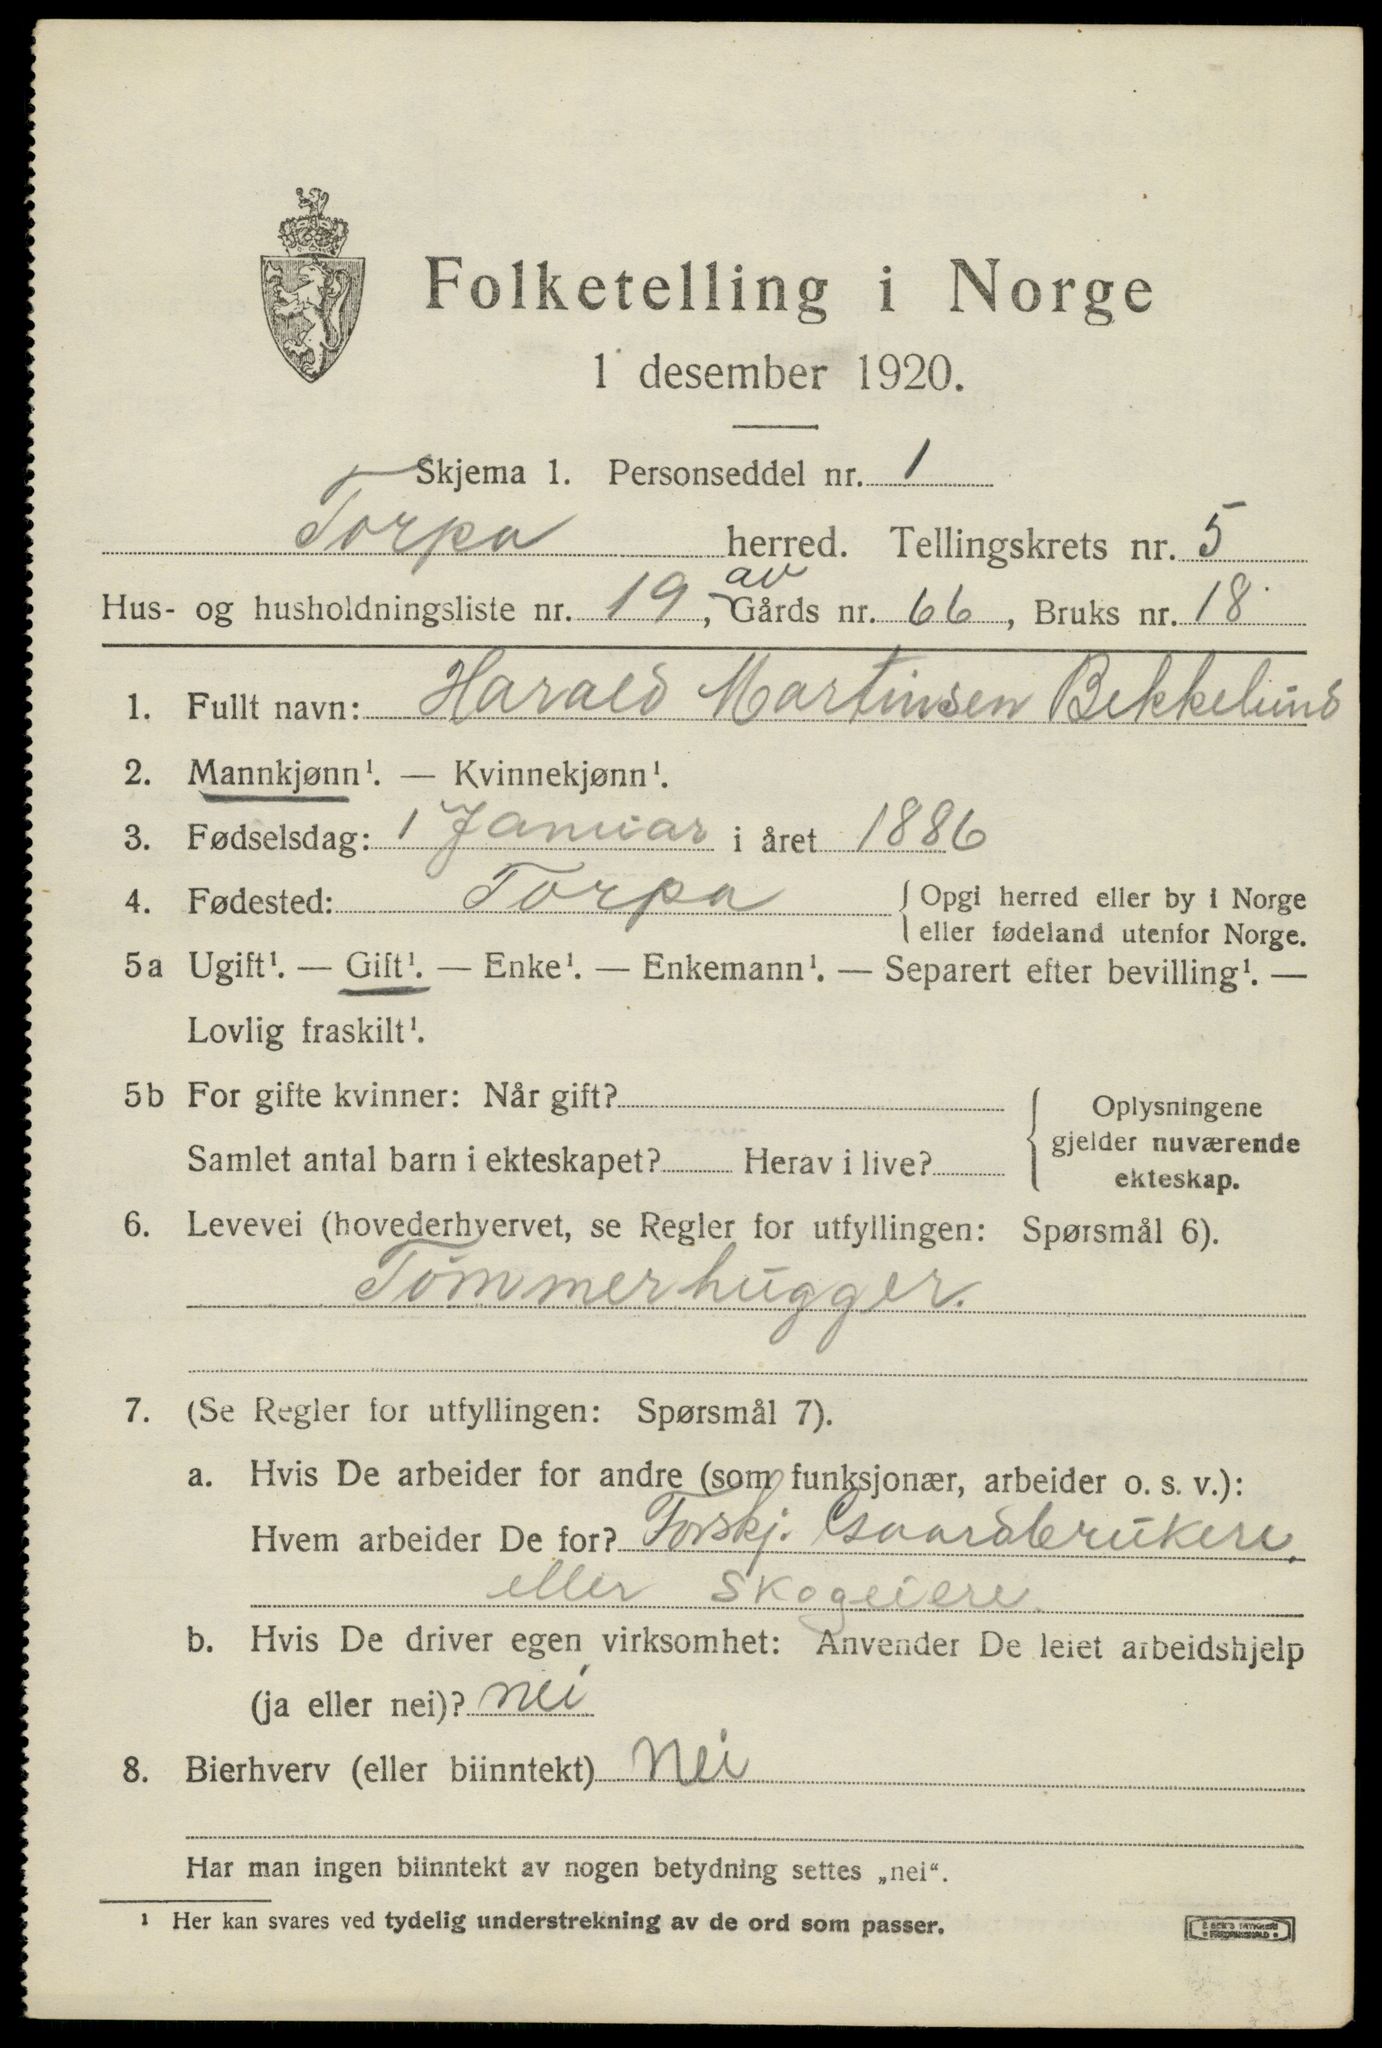 Folketelling i Norge
1 desember 1920.
Skjema 1. Personseddel nr. 1
Torpa herred. Tellingskrets nr. 5
Hus- og husholdningsliste nr. 19, av Gårds nr. 66, Bruks nr. 18
1. Fullt navn: Harald Martinsen Bekkelund
2. Mannkjønn¹. — Kvinnekjønn¹.
3. Fødselsdag: 1 Januar i året 1886
4. Fødested: Torpa { Opgi herred eller by i Norge
eller fødeland utenfor Norge.
5a Ugift¹. — Gift¹. — Enke¹. — Enkemann¹. — Separert efter bevilling¹. —
Lovlig fraskilt¹.
5b For gifte kvinner: Når gift?
Samlet antal barn i ekteskapet? Herav i live?
{ Oplysningene
gjelder nuværende
ekteskap.
6. Levevei (hovederhvervet, se Regler for utfyllingen: Spørsmål 6).
Tømmerhugger.
7. (Se Regler for utfyllingen: Spørsmål 7).
a. Hvis De arbeider for andre (som funksjonær, arbeider o. s. v.):
Hvem arbeider De for? Forskj. Gaardbrukere.
eller Skogeiere.
b. Hvis De driver egen virksomhet: Anvender De leiet arbeidshjelp
(ja eller nei)? nei
8. Bierhverv (eller biinntekt) Nei
Har man ingen biinntekt av nogen betydning settes „nei“.
¹ Her kan svares ved tydelig understrekning av de ord som passer.